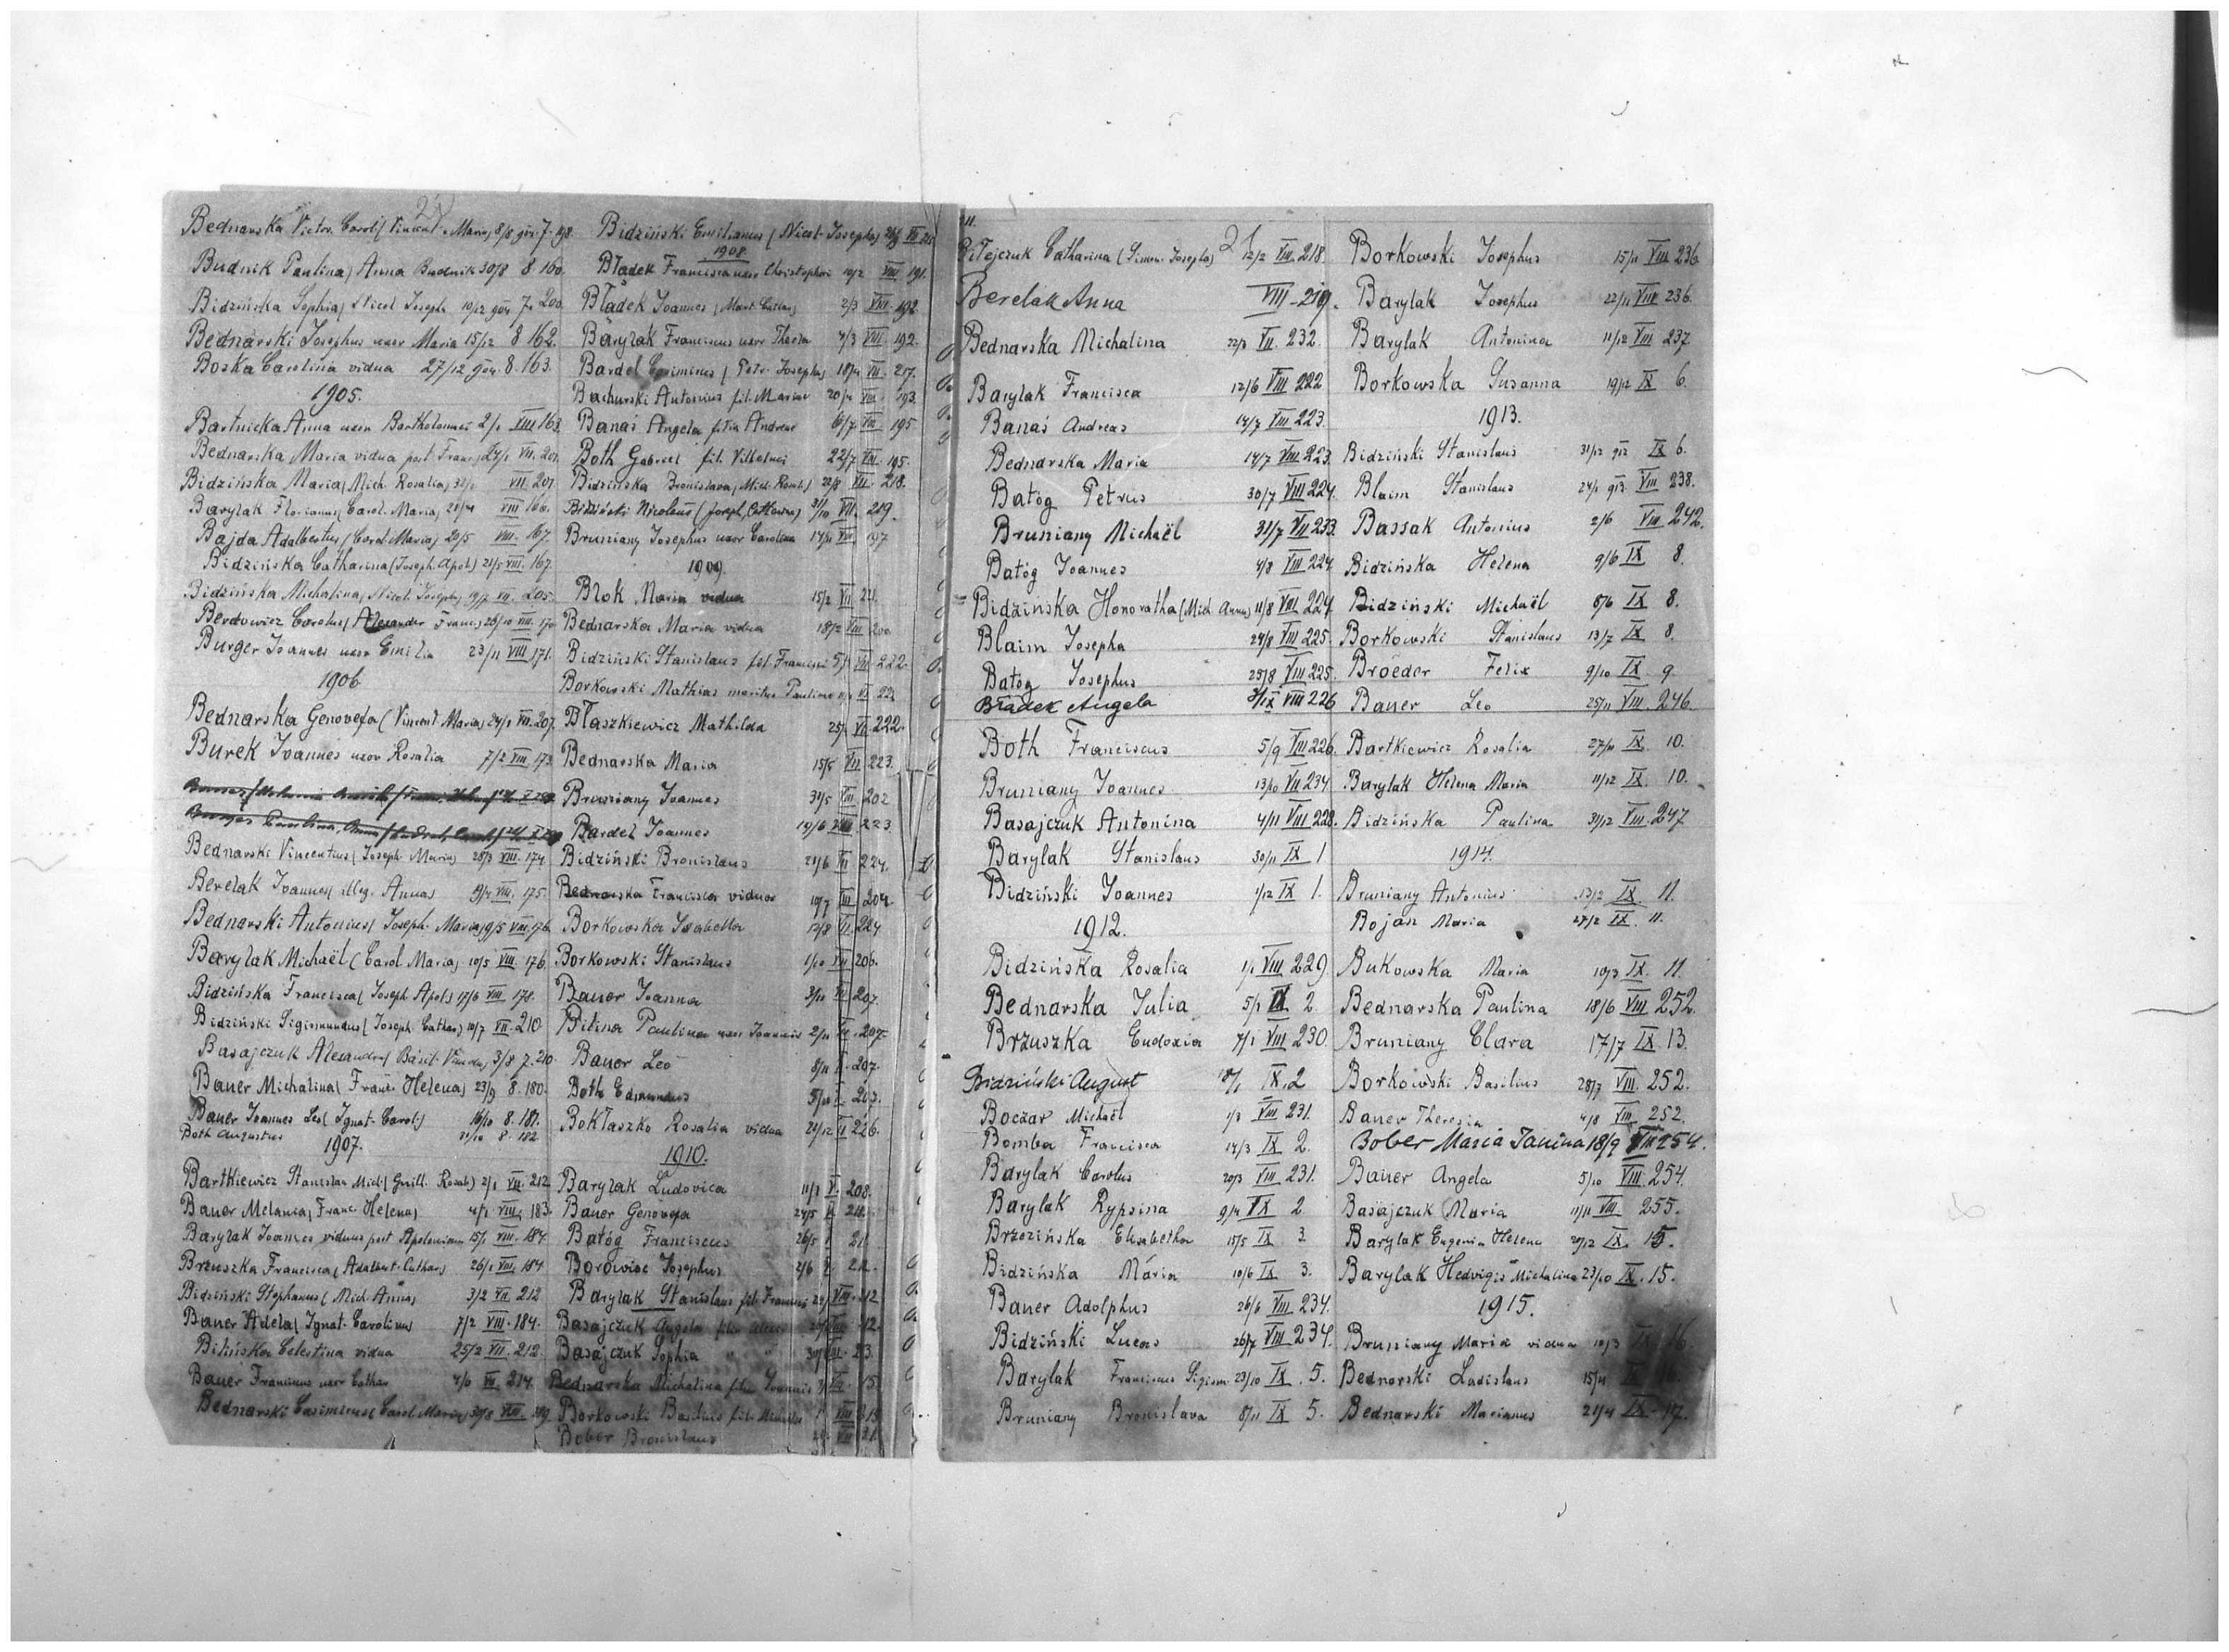 Bednarska Victor. Carol (Vincent. Maria) 8/8 7. 198
Budnik Paulina) Anna Budnik 30/8 8 160.
Bidzińska Sophia) Nicol Josepha 10/12 7. 200
Bednarski Josephus uxor Maria 15/12 8 162.
Boska Carolina vidua 27/12 904. 8. 163.
1905.
Bartnicka Anna uxor Bartholomei 2/1 VIII 163
Bednarska Maria vidua post Franc) 24/1 VII. 201.
Bidzińska Maria (Mich. Rosalia) VII. 201
Barylak Florianus (Carol. Maria) 28/4 VIII 166.
Bajda Adalbertus (Carol. Maria) 20/5 VIII. 167.
Bidzińska Catharina (Joseph. Apol.) 21/5 VIII. 167.
Bidzińska Michalina, Nicol. Josepha, 19/7 VII. 205.
Berdowicz Carolus) Alexander Franc) 28/10 VIII. 170
Burger Joannes uxor Emilia 23/11 VIII 171.
1906
Bednarska Genovefa (Vincent. Maria) 24/1 VII. 207.
Burek Joannes uxor Rosalia 7/2 VIII 173
Bednarski Vincentius (Joseph. Maria) 28/3 VIII. 174.
Berelak Joannes) illeg. Annas 9/4 VIII. 175.
Bednarski Antonius) Joseph. Maria) 9/5 VIII. 176.
Barylak Michaël (Carol Maria) 10/5 VIII. 176.
Bidzińska Francisca (Joseph Apol.) 17/6 VIII 178.
Bidziński Sigismundus (Joseph. Cathar) 10/7 VII. 210
Basajczuk Alexandra) Basil. 3/8 7. 210.
Bauer Michalina (Franc. Helena) 23/9 8. 180.
Bauer Joannes Leo (Ignat. Carol.) 16/10 8. 181.
Both Augustus 31/10 8. 182
1907.
Bartkiewicz Stanislaus Mich (Guill. Rosal.) 2/1 VII. 212
Bauer Melania (Franc. Helena) 4/1 VIII. 183.
Barylak Joannes viduus post Apoloniam 15/1 VIII. 184
Brzuszka Francisca (Adalbert. Cathar) 26/1 VIII. 184
Bidziński Stephanus (Mich. Anna) 3/2 VII 212
Bauer Adela (Ignat. Carolina) 7/2 VIII. 184.
Bilińska Celestina vidua 25/2 VII. 212
Bauer Franciscus uxor Cathar 4/6 VII. 214.
Bednarski Casimirus (Carol. Maria) 30/8 VIII. 189
Bidziński Emilianus (Nicol. Josepha) VII 215
1908
Bładek Franciscauxor Christophori 10/2 VIII. 191.
Bładek Joannes (Mart. Cathar) 2/3 VIII. 192
Barylak Franciscus uxor Thecla 7/3 VIII. 192.
Bardel Casimirus (Petr. Josepha) 18/4 VII. 217.
Bachurski Antonius fil. Mariae 20/4 VIII. 193.
Banaś Angela filia Andreae 6/7 VIII 195
Both Gabriel fil. Vilhelmi 22/7 VIII. 195.
Bidzińska Bronislava, Mich. Rosal.) 22/8 VII. 218.
Bidziński Nicolaus (Joseph, Catharina) 3/10 VII. 219.
Bruniany Josephus uxor Carolina 14/11 VIII. 197
1909.
Blok Maria vidua 15/2 VII. 221.
Bednarska Maria vidua 18/2 VIII 200
Bidziński Stanislaus fil. Francisci VII. 222.
Borkowski Mathias maritus Paulinae VII. 222
Błaszkiewicz Mathilda VII. 222.
Bednarska Maria 15/5 VII 223.
Bruniany Joannes 31/5 VIII. 202
Bardel Joannes 19/6 VII 223
Bidziński Bronislaus 21/6 VII 224.
Bednarska Francisca vidua 10/7 VIII 204.
Borkowska Isabella 12/8 VII. 224
Borkowski Stanislaus 1/10 VIII 206.
Bauer Joanna 3/11 207.
Bilina Paulina uxor Joannis 2/11 207.
Bauer Leo 9/11 207.
Both Edmundus 207.
Bokłaszko Rosalia vidua 21/12 226.
1910.
Barylak Ludovica 11/1 208.
Bauer Genovefa 24/5 211.
Batóg Franciscus 26/5 211
Borowiec Josephus 2/6 212.
Barylak Stanislaus fil. Francisci VIII. 212
Basajczuk Angela filia 212.
Basajczuk Sophia " " 213.
Bednarska Michalina filia Joannis 215
Borkowski Basilius fil. Michaelis VIII 215
Bober Bronislaus VIII 21
Bilejczuk Catharina (Simon. Josepha) 12/2 VIII. 218
Berelak Anna VIII-219.
Bednarska Michalina 22/3 VII. 232.
Barylak Francisca 12/6 VIII 222
Banaś Andreas 14/7 VIII 223.
Bednarska Maria 14/7 VIII 223.
Batóg Petrus 30/7 VIII 224.
Bruniany Michaël 31/7 VII 233.
Batóg Joannes 4/8 VIII 224.
Bidzińska Honoratha (Mich. Anna) 11/8 VIII 224.
Blaim Josepha 24/8 VIII 225.
Batóg Josephus 25/8 VIII 225.
Bładek Angela 3/IX VIII 226
Both Franciscus 5/9 VIII 226.
Bruniany Joannes 13/10 VII 234.
Basajczuk Antonina 4/11 VIII 228.
Barylak Stanislaus 30/11 IX 1
Bidziński Joannes 1/12 IX 1.
1912.
Bidzińska Rosalia 1/1 VIII 229.
Bednarska Julia 5/1 IX 2.
Brzuszka Eudoxia 7/1 VIII 230.
Bidziński August 18/1 IX. 2
Boczar Michaël 1/3 VIII 231.
Bomba Francisca 14/3 IX 2.
Barylak Carolus 20/3 VIII 231.
Barylak Rypsina 9/4 IX 2
Brzezińska Elisabetha 15/5 IX 3.
Bidzińska Maria 10/6 IX 3.
Bauer Adolphus 26/6 VIII 234.
Bidziński Lucas 26/7 VIII 234.
Barylak Franciscus Sigism 23/10 IX. 5.
Bruniany Bronislava 8/11 IX 5.
Borkowski Josephus 15/11 VIII 236
Barylak Josephus 22/11 VIII 236.
Barylak Antonina 11/12 VIII 237
Borkowska Susanna 19/12 IX 6.
1913.
Bidziński Stanislaus 31/12 912 IX 6.
Blaim Stanislaus 24/1 913. VIII 238.
Bassak Antonius 2/6 VIII 242.
Bidzińska Helena 9/6 IX 8.
Bidziński Michaël 8/6 IX 8.
Borkowski Stanislaus 13/7 IX 8.
Broeder Felix 9/10 IX 9.
Bauer Leo 25/11 VIII. 246.
Bartkiewicz Rosalia 27/11 IX. 10.
Barylak Helena Maria 11/12 IX. 10.
Bidzińska Paulina 31/12 VIII. 247
1914.
Bruniany Antonius 13/2 IX. 11.
Bojan Maria 27/2 IX. 11.
Bukowska Maria 10/3 IX. 11.
Bednarska Paulina 18/6 VIII 252.
Bruniany Clara 17/7 IX. 13.
Borkowski Basilius 28/7 VIII. 252.
Bauer Theresia 4/8 VIII. 252.
Bober Maria Janina 18/9 VIII 254.
Bauer Angela 5/10 VIII. 254.
Basajczuk Maria 11/11 VIII 255.
Barylak Eugenia Helena 20/12 IX. 15.
Barylak Hedvigis Michalina 23/10 IX. 15.
1915.
Bruniany Maria vidua 10/3 IX 16
Bednarski Ladislaus 15/4 IX 16.
Bednarski Marianus 21/4 IX. 17.